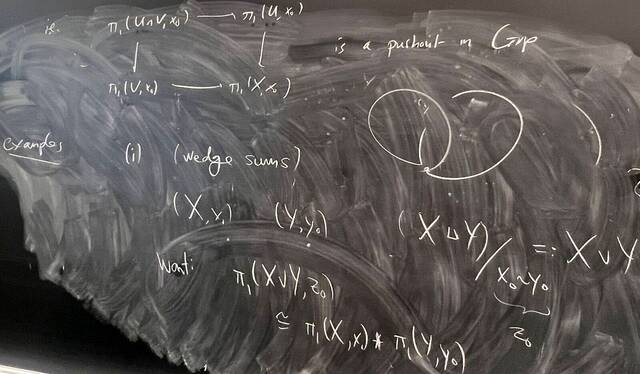 ie. π₁(U∩V, x₀) → π₁(U, x₀)
π₁(V, x₀) → π₁(X, x₀)
is a pushout in Grp
examples (i) (wedge sums)
(X, x₀) (Y, y₀) (X ⊔ Y)/x₀~y₀ =: X ∨ Y
z₀
Want: π₁(X∨Y, z₀)
≅ π₁(X, x₀) * π₁(Y, y₀)